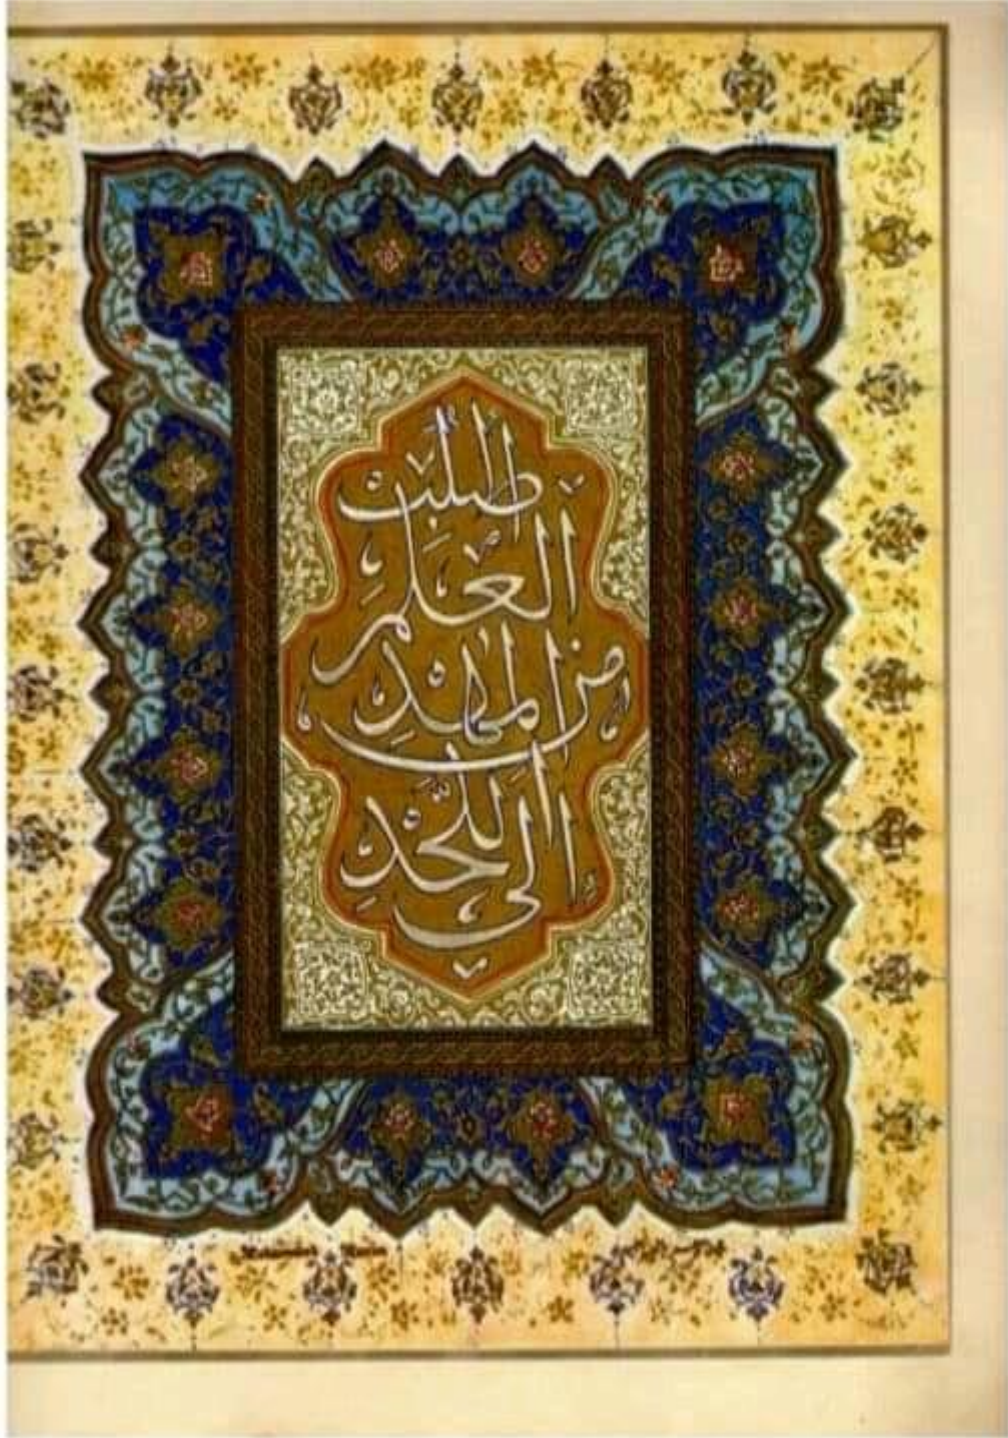 طلبت
العلم
من المهد
الى اللحد